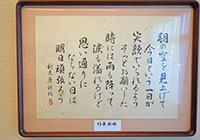 朝の空を見上げて
今日という一日が
笑顔でいられるように
そっとお願いした
時には雨も降って
涙も溢れるけど
思い通りに
ならない日は
明日頑張ろう